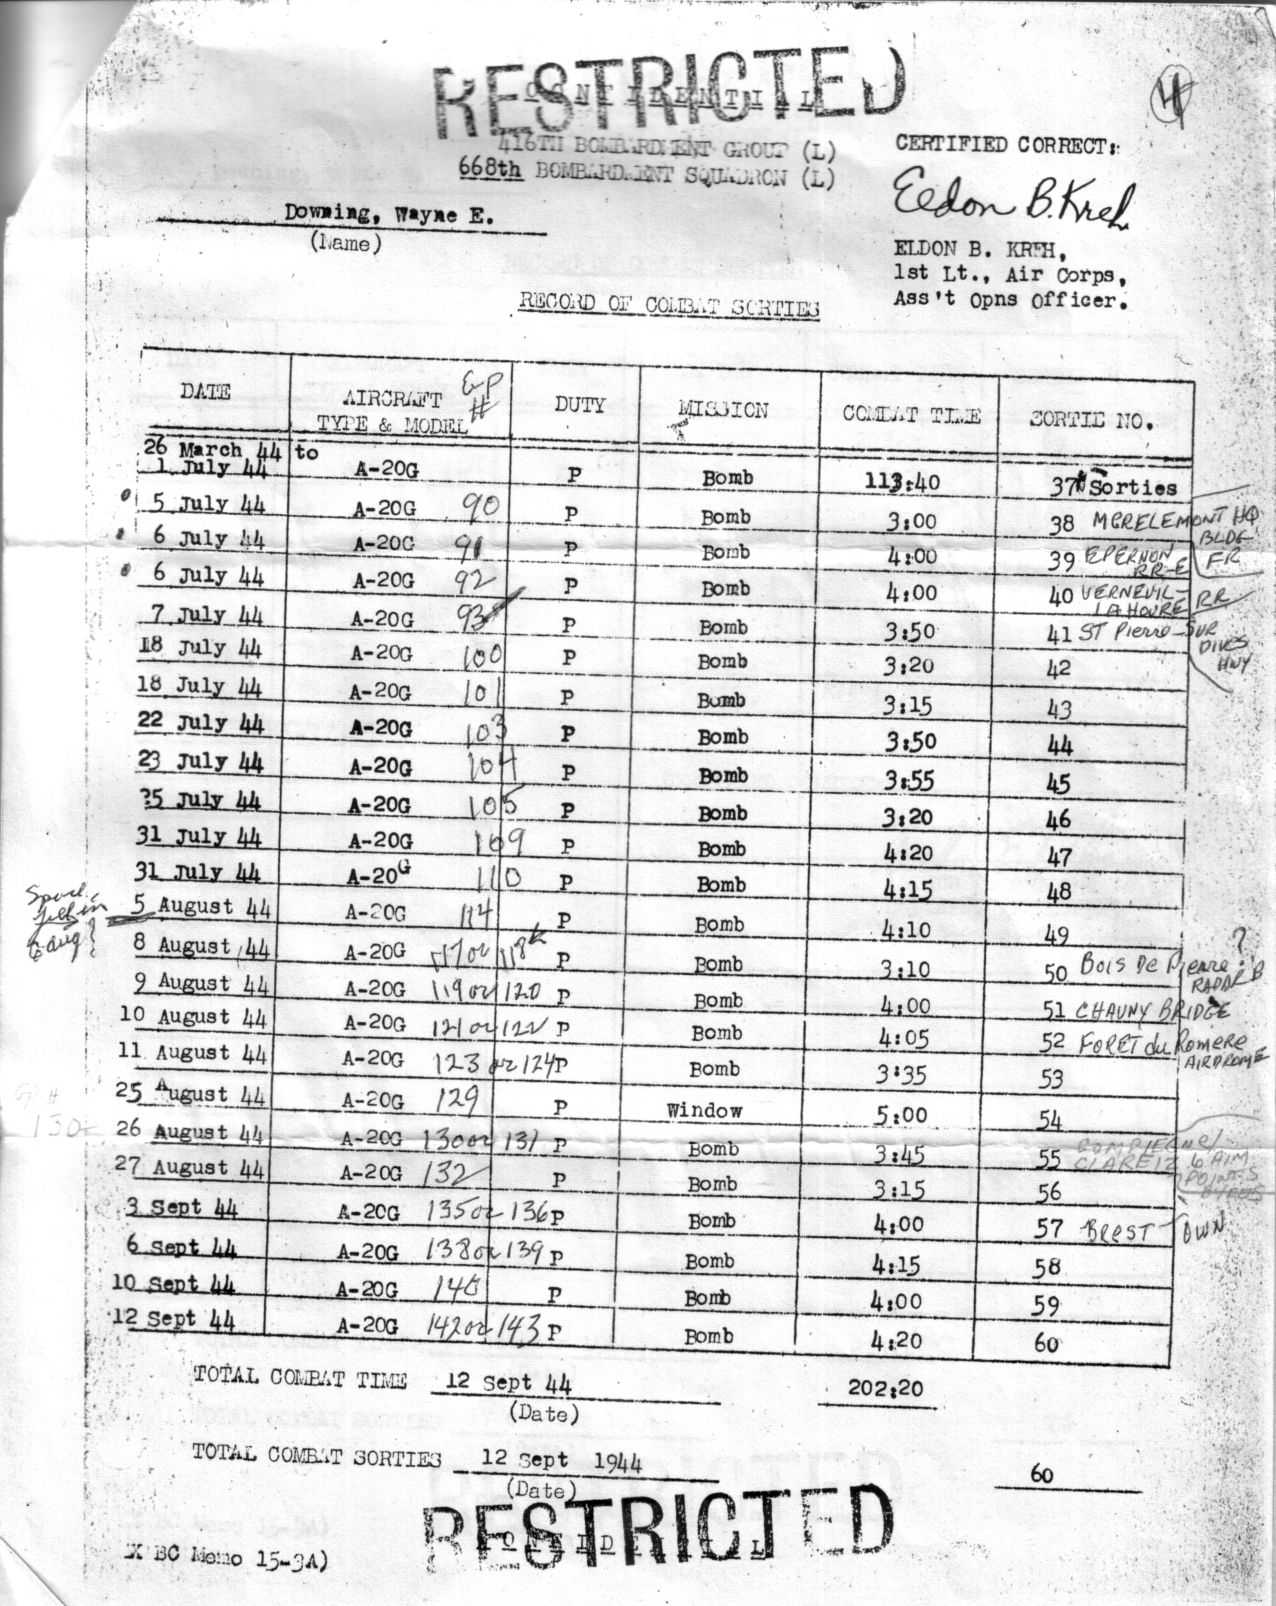 RESTRICTED
416TH BOMBARDMENT GROUP (L)
668th BOMBARDMENT SQUADRON (L)
4
CERTIFIED CORRECT:
Eldon B. Kreh
ELDON B. KREH,
1st Lt., Air Corps,
Ass't Opns Officer.
Downing, Wayne E.
(Name)
RECORD OF COMBAT SORTIES
DATE AIRCRAFT TYPE & MODEL GP # DUTY MISSION COMBAT TIME SORTIE NO.
26 March 44 to
1 July 44 A-20G P Bomb 113:40 37 Sorties
5 July 44 A-20G 90 P Bomb 3:00 38 MERELEMONT HQ BLDG FR
6 July 44 A-20G 91 P Bomb 4:00 39 EPERNON RR-E
6 July 44 A-20G 92 P Bomb 4:00 40 VERNEUIL- RR
7 July 44 A-20G 93 P Bomb 3:50 41 ST Pierre-SUR DIVES HWY
18 July 44 A-20G 100 P Bomb 3:20 42
18 July 44 A-20G 101 P Bomb 3:15 43
22 July 44 A-20G 103 P Bomb 3:50 44
23 July 44 A-20G 104 P Bomb 3:55 45
25 July 44 A-20G 105 P Bomb 3:20 46
31 July 44 A-20G 109 P Bomb 4:20 47
31 July 44 A-20G 110 P Bomb 4:15 48
5 August 44 A-20G 114 P Bomb 4:10 49
6 aug?
8 August 44 A-20G 117 or 118 P Bomb 3:10 50 Bois De Pierre? RADAR B
9 August 44 A-20G 119 or 120 P Bomb 4:00 51 CHAUNY BRIDGE
10 August 44 A-20G 121 or 122 P Bomb 4:05 52 FORET du Romere AIRDROME
11 August 44 A-20G 123 or 124 P Bomb 3:35 53
25 August 44 A-20G 129 P Window 5:00 54
26 August 44 A-20G 130 or 131 P Bomb 3:45 55 COMPIEGNE/ CLAREIZ 6 AIM POINTS
27 August 44 A-20G 132 P Bomb 3:15 56
3 Sept 44 A-20G 135 or 136 P Bomb 4:00 57 BREST TOWN
6 Sept 44 A-20G 138 or 139 P Bomb 4:15 58
10 Sept 44 A-20G 140 P Bomb 4:00 59
12 Sept 44 A-20G 142 or 143 P Bomb 4:20 60
TOTAL COMBAT TIME 12 Sept 44 202:20
(Date)
TOTAL COMBAT SORTIES 12 Sept 1944 60
(Date)
RESTRICTED
BC Memo 15-3A)